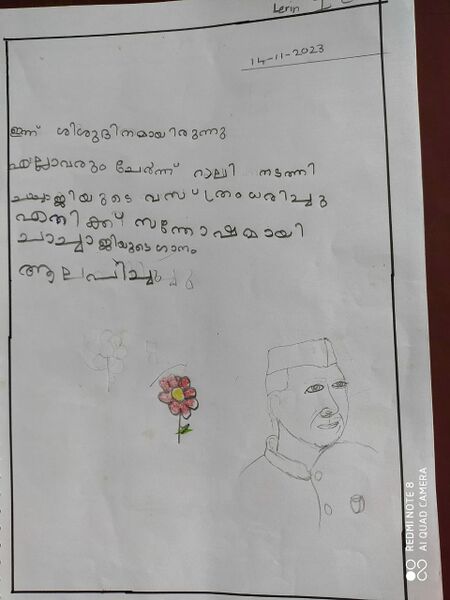 Lerin
14-11-2023
ഇന്ന് ശിശുദിനമായിരുന്നു
എല്ലാവരും ചേർന്ന് റാലി നടത്തി
ചാച്ചാജിയുടെ വസ്ത്രം ധരിച്ചു
എനിക്ക് സന്തോഷമായി
ചാച്ചാജിയുടെ ഗാനം
ആലപിച്ചു
REDMI NOTE 8
AI QUAD CAMERA